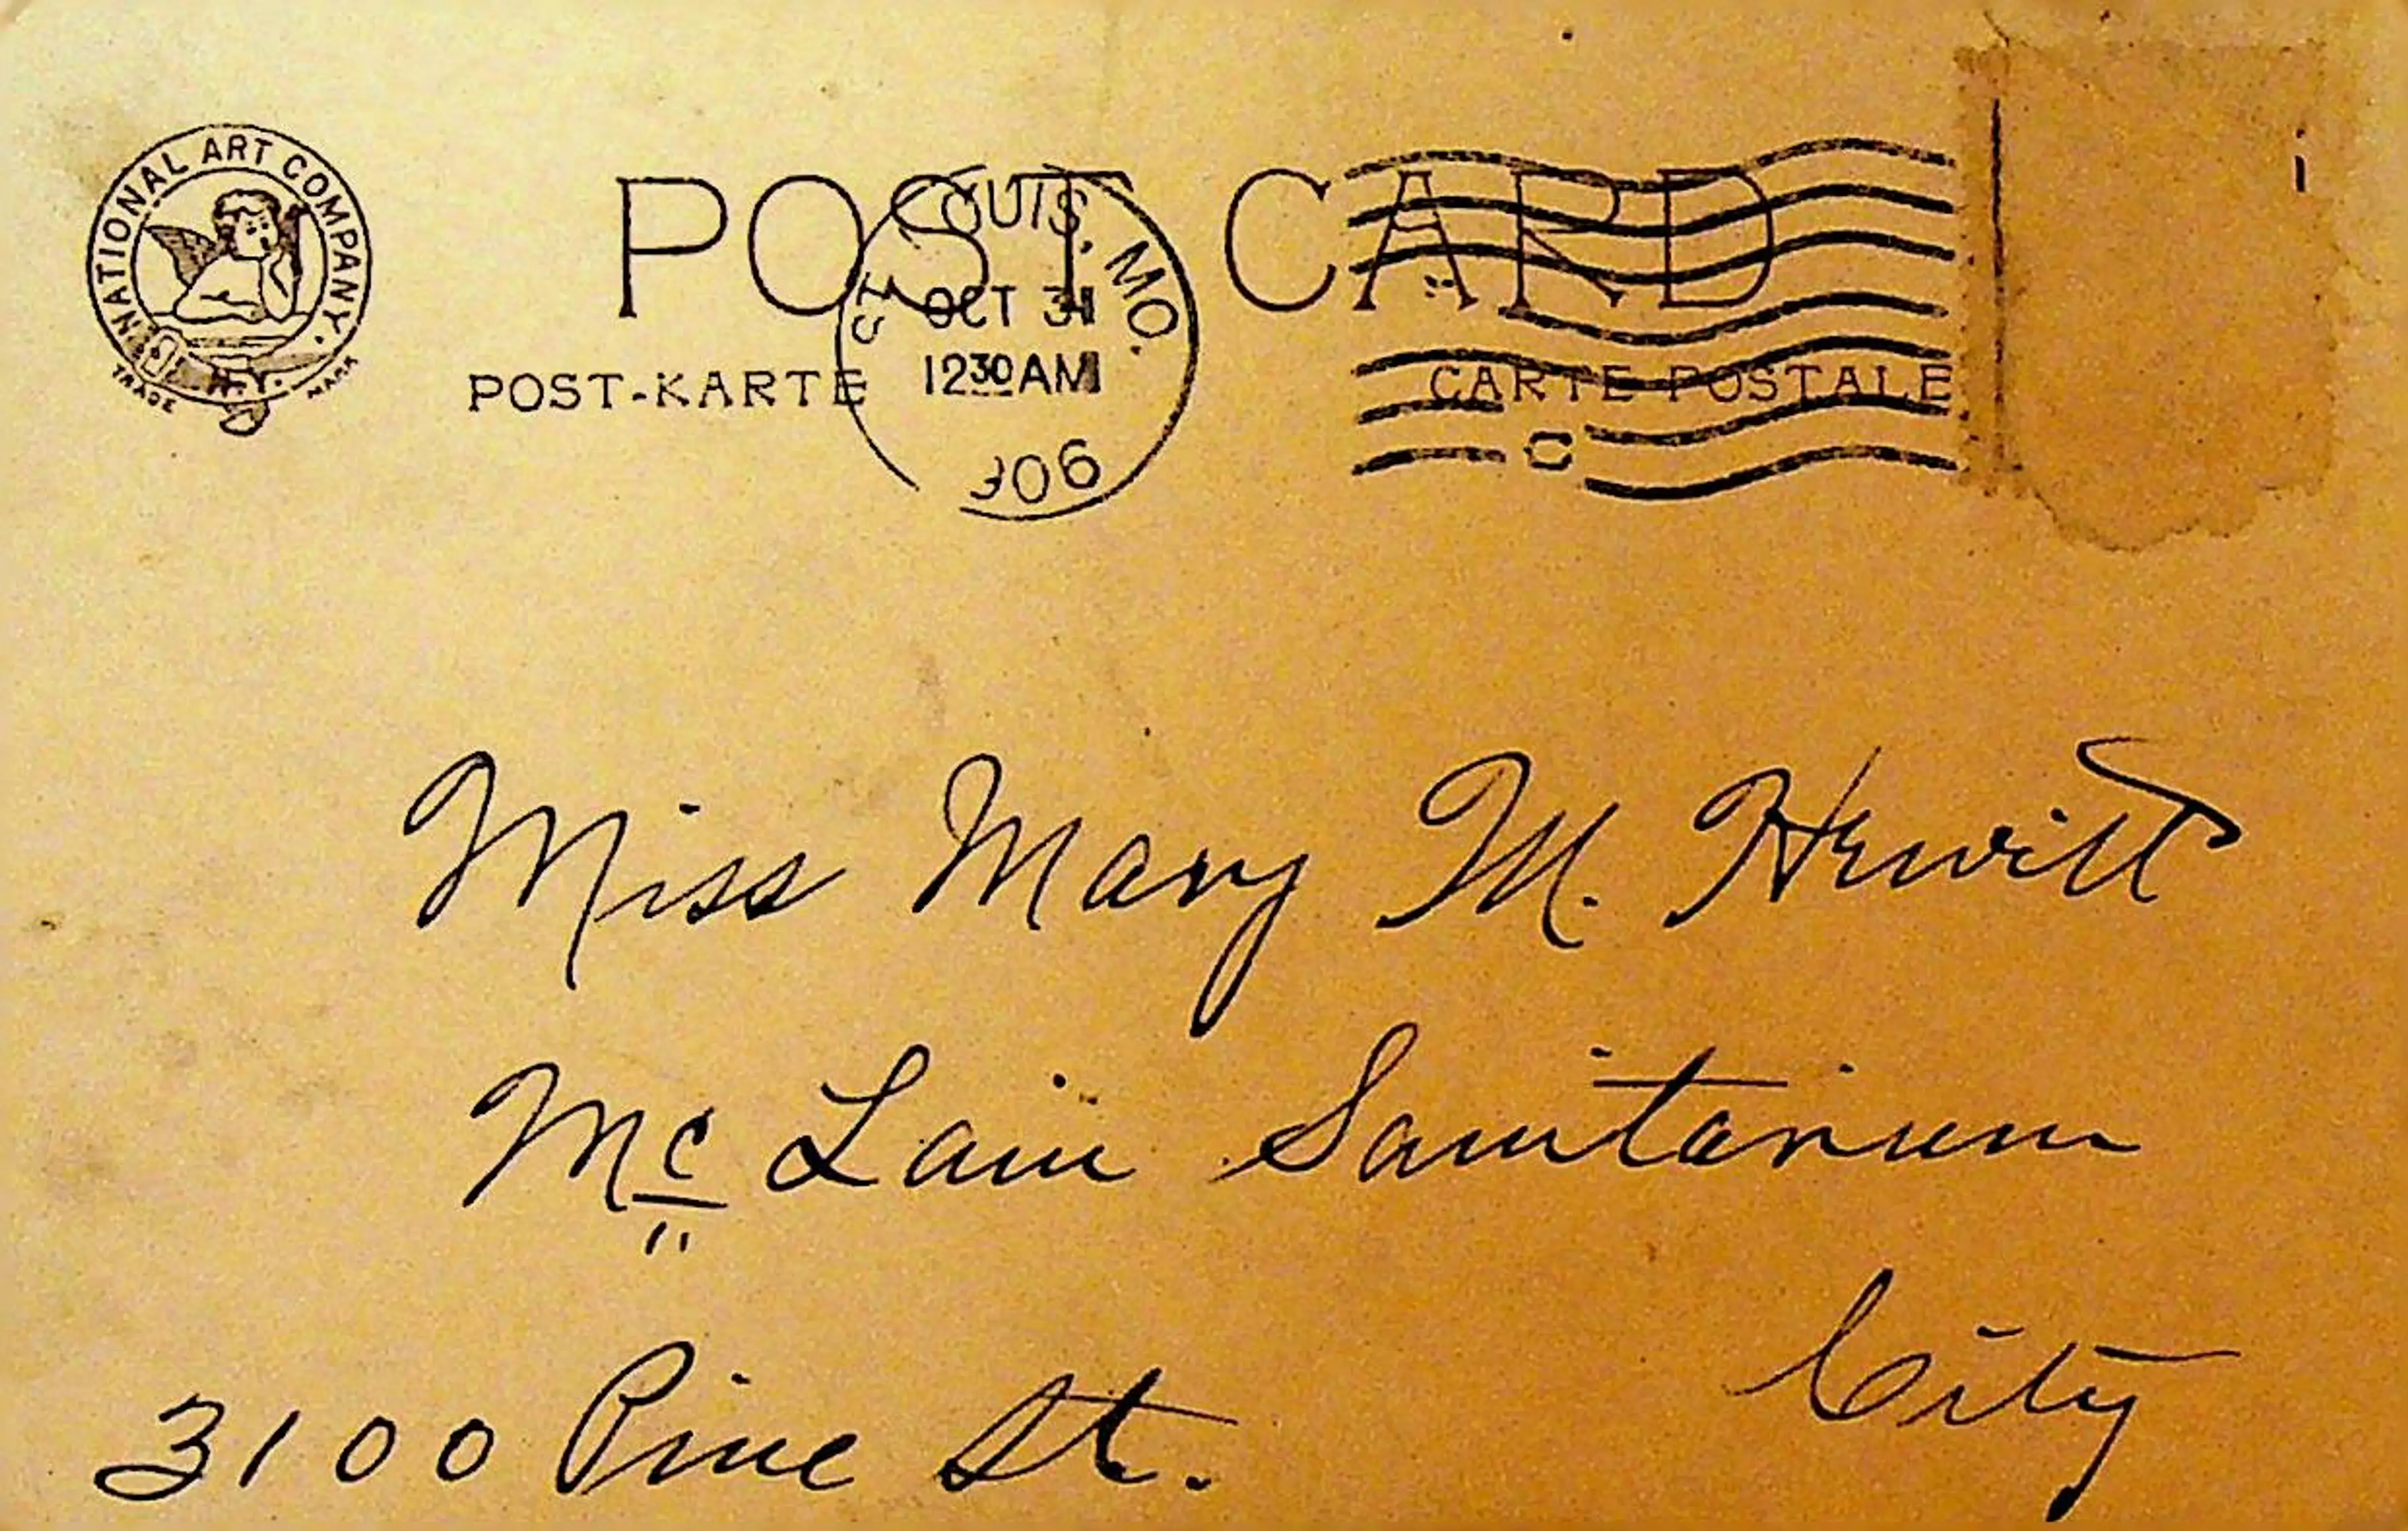 NATIONAL ART COMPANY.
N.Y.
TRADE MARK
POST CARD
POST-KARTE
CARTE POSTALE
ST. LOUIS, MO.
OCT 31
1230AM
906
C
Miss Mary M. Hewitt
Mc Lain Sanitarium
City
3100 Pine St.